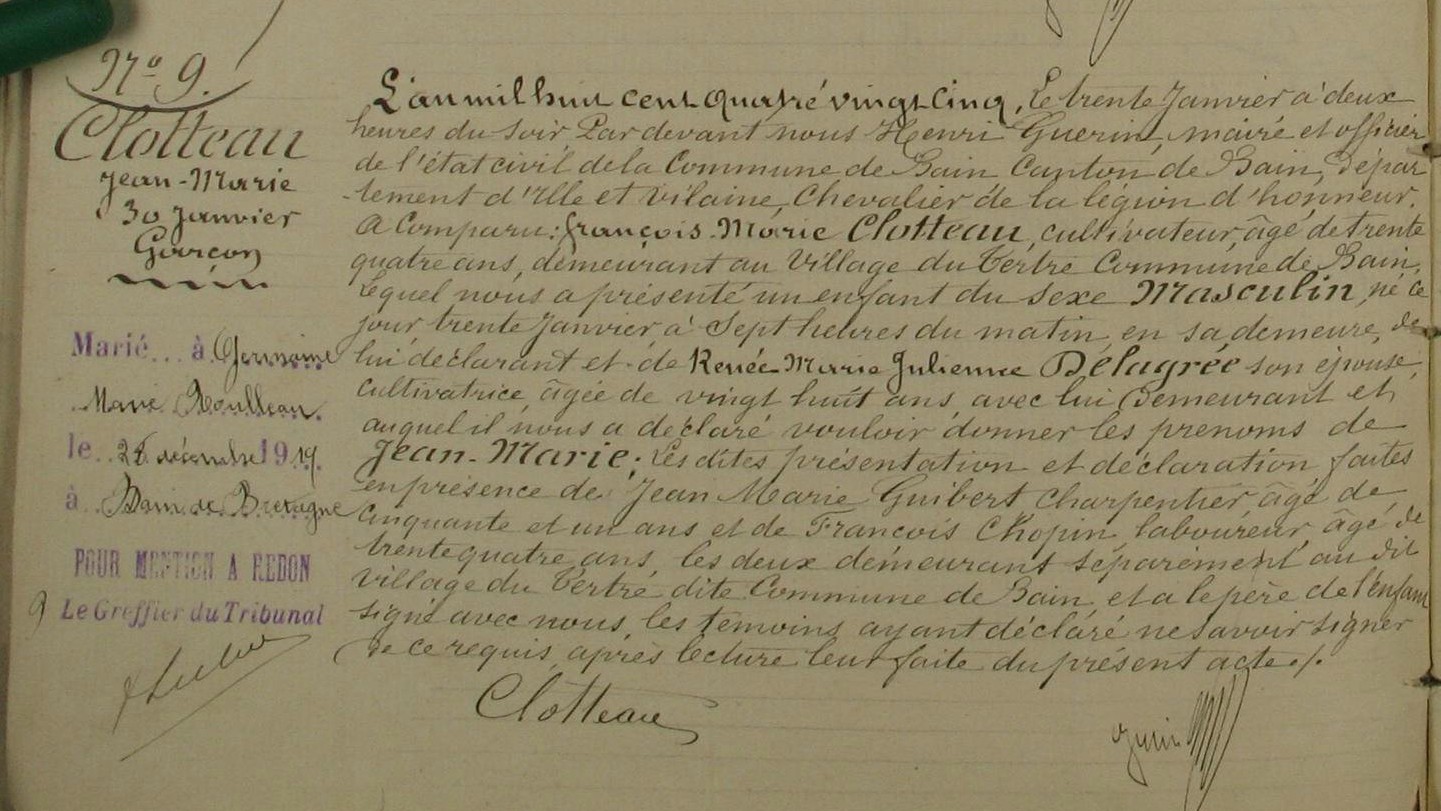 Nº 9.
Clotteau
Jean-Marie
30 Janvier
Garçon
Marié... à Germaine
Marie
le 28 décembre 1919
à Bain de Bretagne
POUR MENTION A REDON
Le Greffier du Tribunal
L'an mil huit cent quatre vingt cinq, le trente Janvier à deux
heures du soir Par devant nous Henri Guerin, maire et officier
de l'état civil de la Commune de Bain Canton de Bain, Dépar
-tement d'Ille et Vilaine, Chevalier de la légion d'honneur.
A Comparu: françois-Marie Clotteau, cultivateur, âgé de trente
quatre ans, demeurant au village du Tertre Commune de Bain,
lequel nous a présenté un enfant du sexe Masculin, né ce
jour trente Janvier à sept heures du matin, en sa demeure, de
lui déclarant et de Renée Marie Julienne Délagrée son épouse,
cultivatrice, âgée de vingt huit ans, avec lui Demeurant et
auquel il nous a déclaré vouloir donner les prenoms de
Jean-Marie; Les dites présentation et déclaration faites
en présence de Jean Marie Guibert charpentier, âgé de
cinquante et un ans et de François Chopin, laboureur, âgé de
trente quatre ans, les deux demeurant séparément au dit
village du Tertre, dite Commune de Bain, et a le père de l'enfant
signé avec nous, les témoins ayant déclaré ne savoir signer
de ce requis, après lecture leur faite du présent acte ./.
Clotteau